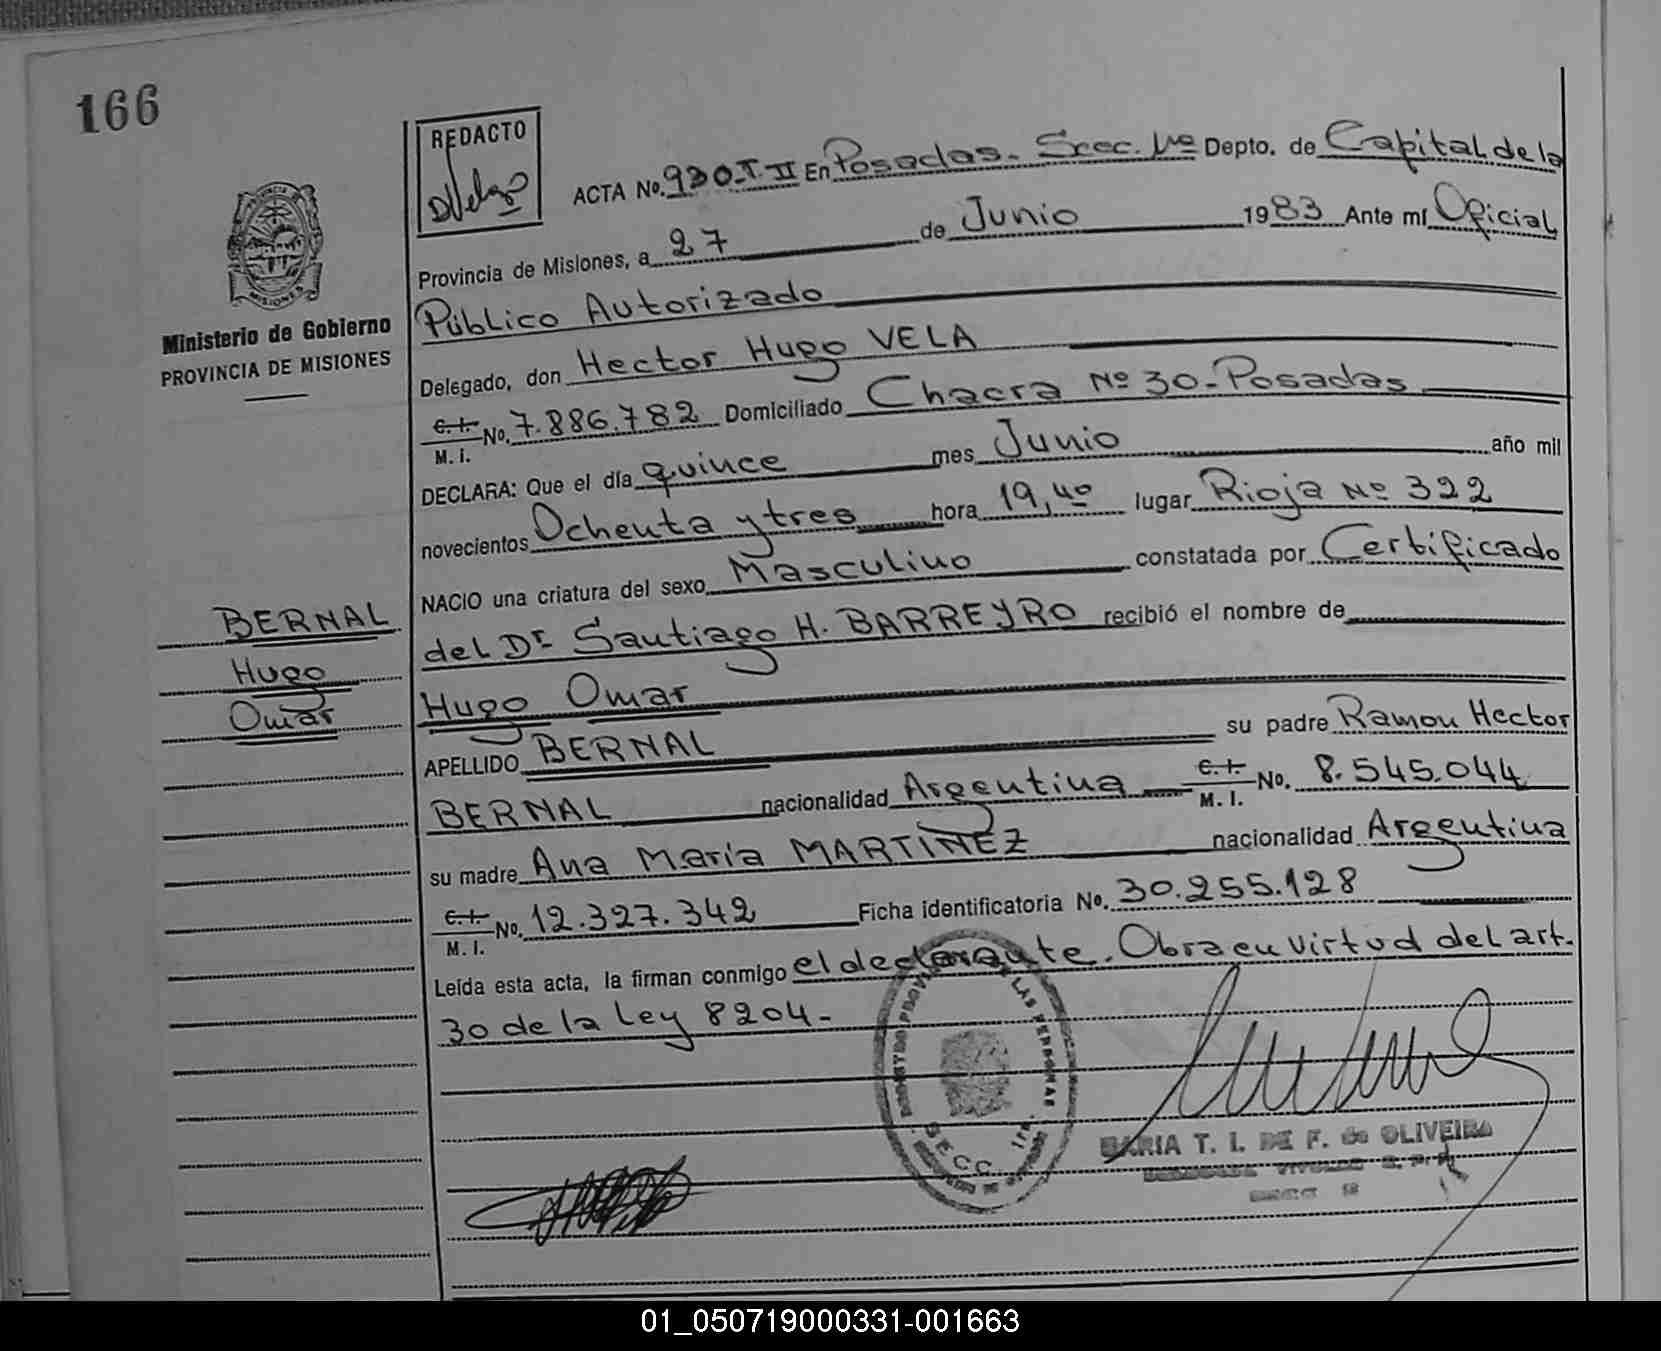 166
REDACTO
ACTA No. 930-T. II En Posadas. Secc. 1ra Depto. de Capital de la
Provincia de Misiones, a 27 de Junio 1983 Ante mí Oficial
MISIONES
Ministerio de Gobierno
PROVINCIA DE MISIONES
Público Autorizado
Delegado, don Hector Hugo VELA
C.I. M. I. No. 7.886.782 Domiciliado Chacra Nº 30-Posadas
DECLARA: Que el día quince mes Junio año mil
novecientos Ochenta y tres hora 19,40 lugar Rioja Nº 322
NACIO una criatura del sexo Masculino constatada por Certificado
del Dr Santiago H. BARREYRO recibió el nombre de
BERNAL
Hugo
Omar
Hugo Omar
APELLIDO BERNAL su padre Ramon Hector
BERNAL nacionalidad Argentina C.I. M. I. No. 8.545.044
su madre Ana María MARTIÑEZ nacionalidad Argentina
C.I. M. I. No. 12.327.342 Ficha identificatoria No. 30.255.128
Leída esta acta, la firman conmigo el declarante. Obra en virtud del art.
30 de la Ley 8204-
LAS PERSONAS
SECC. 1ra.
MARIA T. I. DE F. de OLIVEIRA
01_050719000331-001663